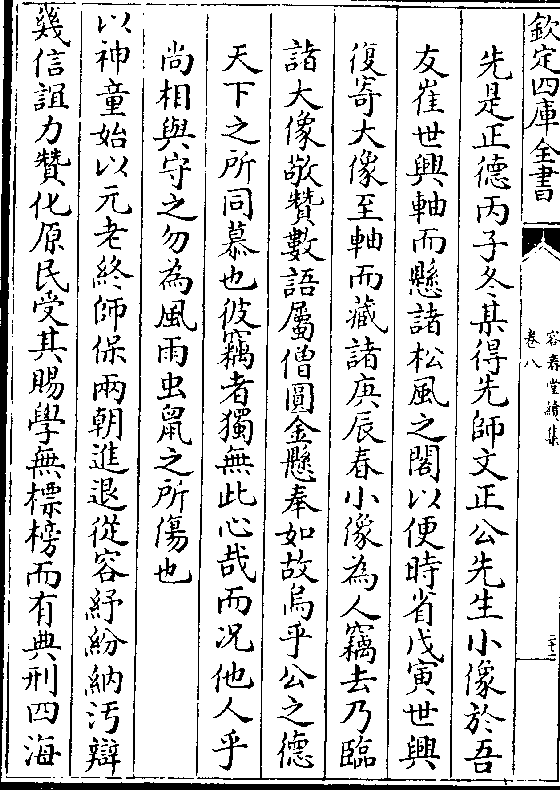 欽定四庫全書
容春堂續集
卷八
先是正德丙子冬某得先師文正公先生小像於吾
友崔世興軸而懸諸松風之閣以便時省戊寅世興
復寄大像至軸而藏諸庚辰春小像為人竊去乃臨
諸大像敬贊數語屬僧圓金懸奉如故烏乎公之德
天下之所同慕也彼竊者獨無此心哉而况他人乎
尚相與守之勿為風雨虫鼠之所傷也
以神童始以元老終師保兩朝進退從容紓紛納汚辯
㡬信誼力贊化原民受其賜學無標榜而有典刑四海